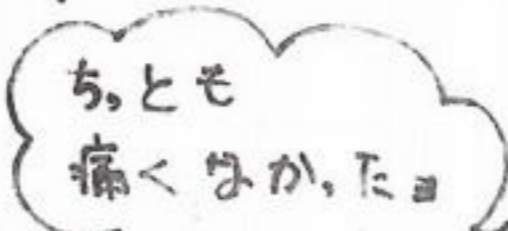 ちっとも
痛くなかったョ